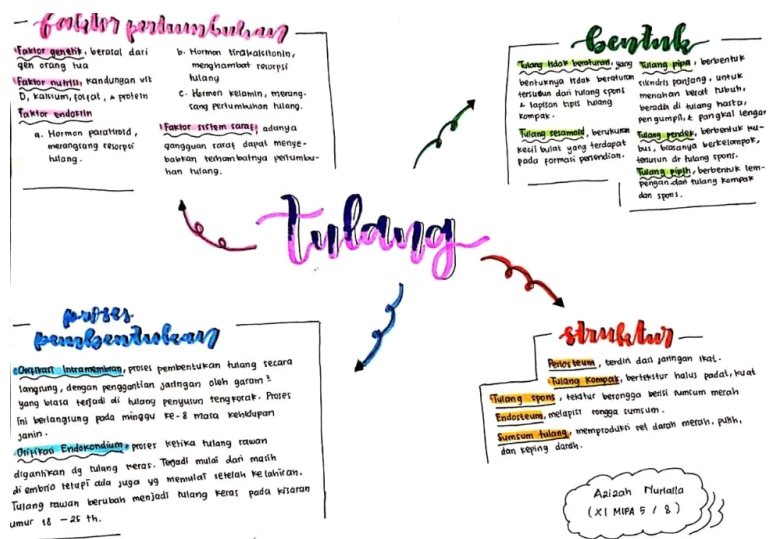 faktor pertumbuhan
Faktor genetik, berasal dari
gen orang tua
Faktor nutrisi, kandungan vit
D, kalsium, fosfat, & protein
Faktor endokrin
a. Hormon paratiroid,
merangsang resorpsi
tulang.
b. Hormon tirokalsitonin,
menghambat resorpsi
tulang
c. Hormon kelamin, merang-
sang pertumbuhan tulang.
Faktor sistem saraf, adanya
gangguan saraf dapat menye-
babkan terhambatnya pertumbu-
han tulang.
bentuk
Tulang tidak beraturan, yang
bentuknya tidak beraturan
tersusun dari tulang spons
& lapisan tipis tulang
kompak.
Tulang sesamoid, berukuran
kecil bulat yang terdapat
pada formasi persendian.
Tulang pipa, berbentuk
silindris panjang, untuk
menahan berat tubuh,
berada di tulang hasta,
pengumpil, & pangkal lengan
Tulang pendek, berbentuk ku-
bus, biasanya berkelompok,
tersusun dr tulang spons.
Tulang pipih, berbentuk lem-
pengan dari tulang kompak
dan spons.
Tulang
proses
pembentukan
Osifikasi Intramembran, proses pembentukan tulang secara
langsung, dengan penggantian jaringan oleh garam²
yang biasa terjadi di tulang penyusun tengkorak. Proses
ini berlangsung pada minggu ke-8 masa kehidupan
janin.
Osifikasi Endokondium, proses ketika tulang rawan
digantikan dg tulang keras. Terjadi mulai dari masih
di embrio tetapi ada juga yg memulai setelah kelahiran.
Tulang rawan berubah menjadi tulang keras pada kisaran
umur 18 - 25 th.
struktur
Periosteum, terdiri dari jaringan ikat.
Tulang kompak, bertekstur halus padat, kuat
Tulang spons, tekstur berongga berisi sumsum merah
Endosteum, melapisi rongga sumsum.
Sumsum tulang, memproduksi sel darah merah, putih,
dan keping darah.
Azizah Nurlaila
(XI MIPA 5 / 8)